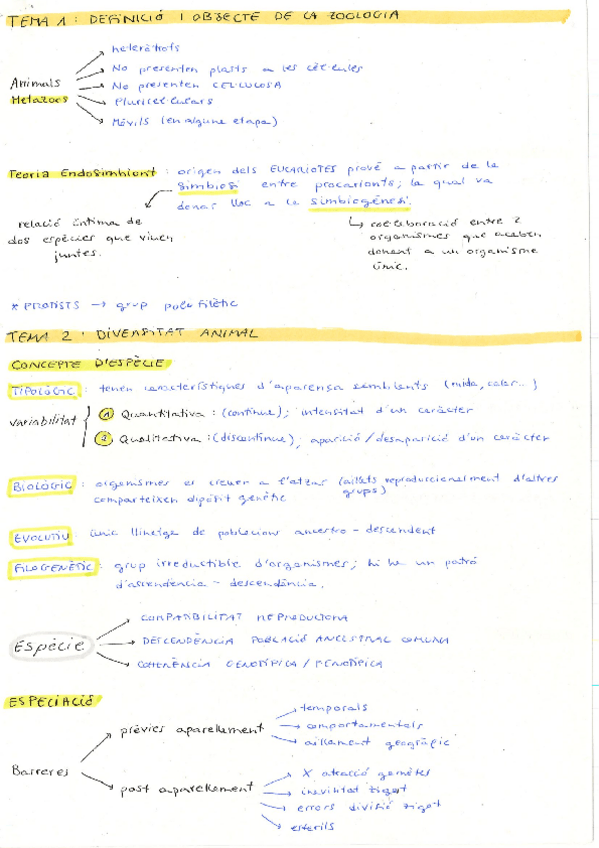 TEMA 1: DEFINICIÓ I OBJECTE DE LA ZOOLOGIA
Animals
Metazoes
heteròtrofs
No presenten plasts a les cèl·lules
No presenten CEL·LULOSA
Pluricel·lulars
Mòvils (en alguna etapa)
Teoria Endosimbiont : origen dels EUCARIOTES prové a partir de la
simbiosi entre procarionts; la qual va
donar lloc a la simbiogènesi.
relació íntima de
dos espècies que viuen
juntes.
col·laboració entre 2
organismes que acaben
donant a un organisme
únic.
* PROTISTS → grup polifilètic
TEMA 2: DIVERSITAT ANIMAL
CONCEPTE D'ESPÈCIE
TIPOLÒGIC : tenen característiques d'aparença semblants (mida, color..)
variabilitat
1 Quantitativa: (continua); intensitat d'un caràcter
2 Qualitativa: (discontinua); aparició/desaparició d'un caràcter
BIOLÒGIC : organismes es creuen a l'atzar (aïllats reproduccionalment d'altres
grups)
comparteixen dipòsit genètic
EVOLUTIU : únic llinatge de poblacions ancestro-descendent
FILOGENÈTIC : grup irreductible d'organismes; hi ha un patró
d'ascendencia - descendència.
Espècie
COMPATIBILITAT REPRODUCTORA
DESCENDÈNCIA POBLACIÓ ANCESTRAL COMUNA
COHERÈNCIA GENOTÍPICA / FENOTÍPICA
ESPECIACIÓ
Barreres
prèvies aparellament
temporals
comportamentals
aïllament geogràfic
post aparellament
X atracció gamètes
inviabilitat zigot
errors divisió zigot
esterils